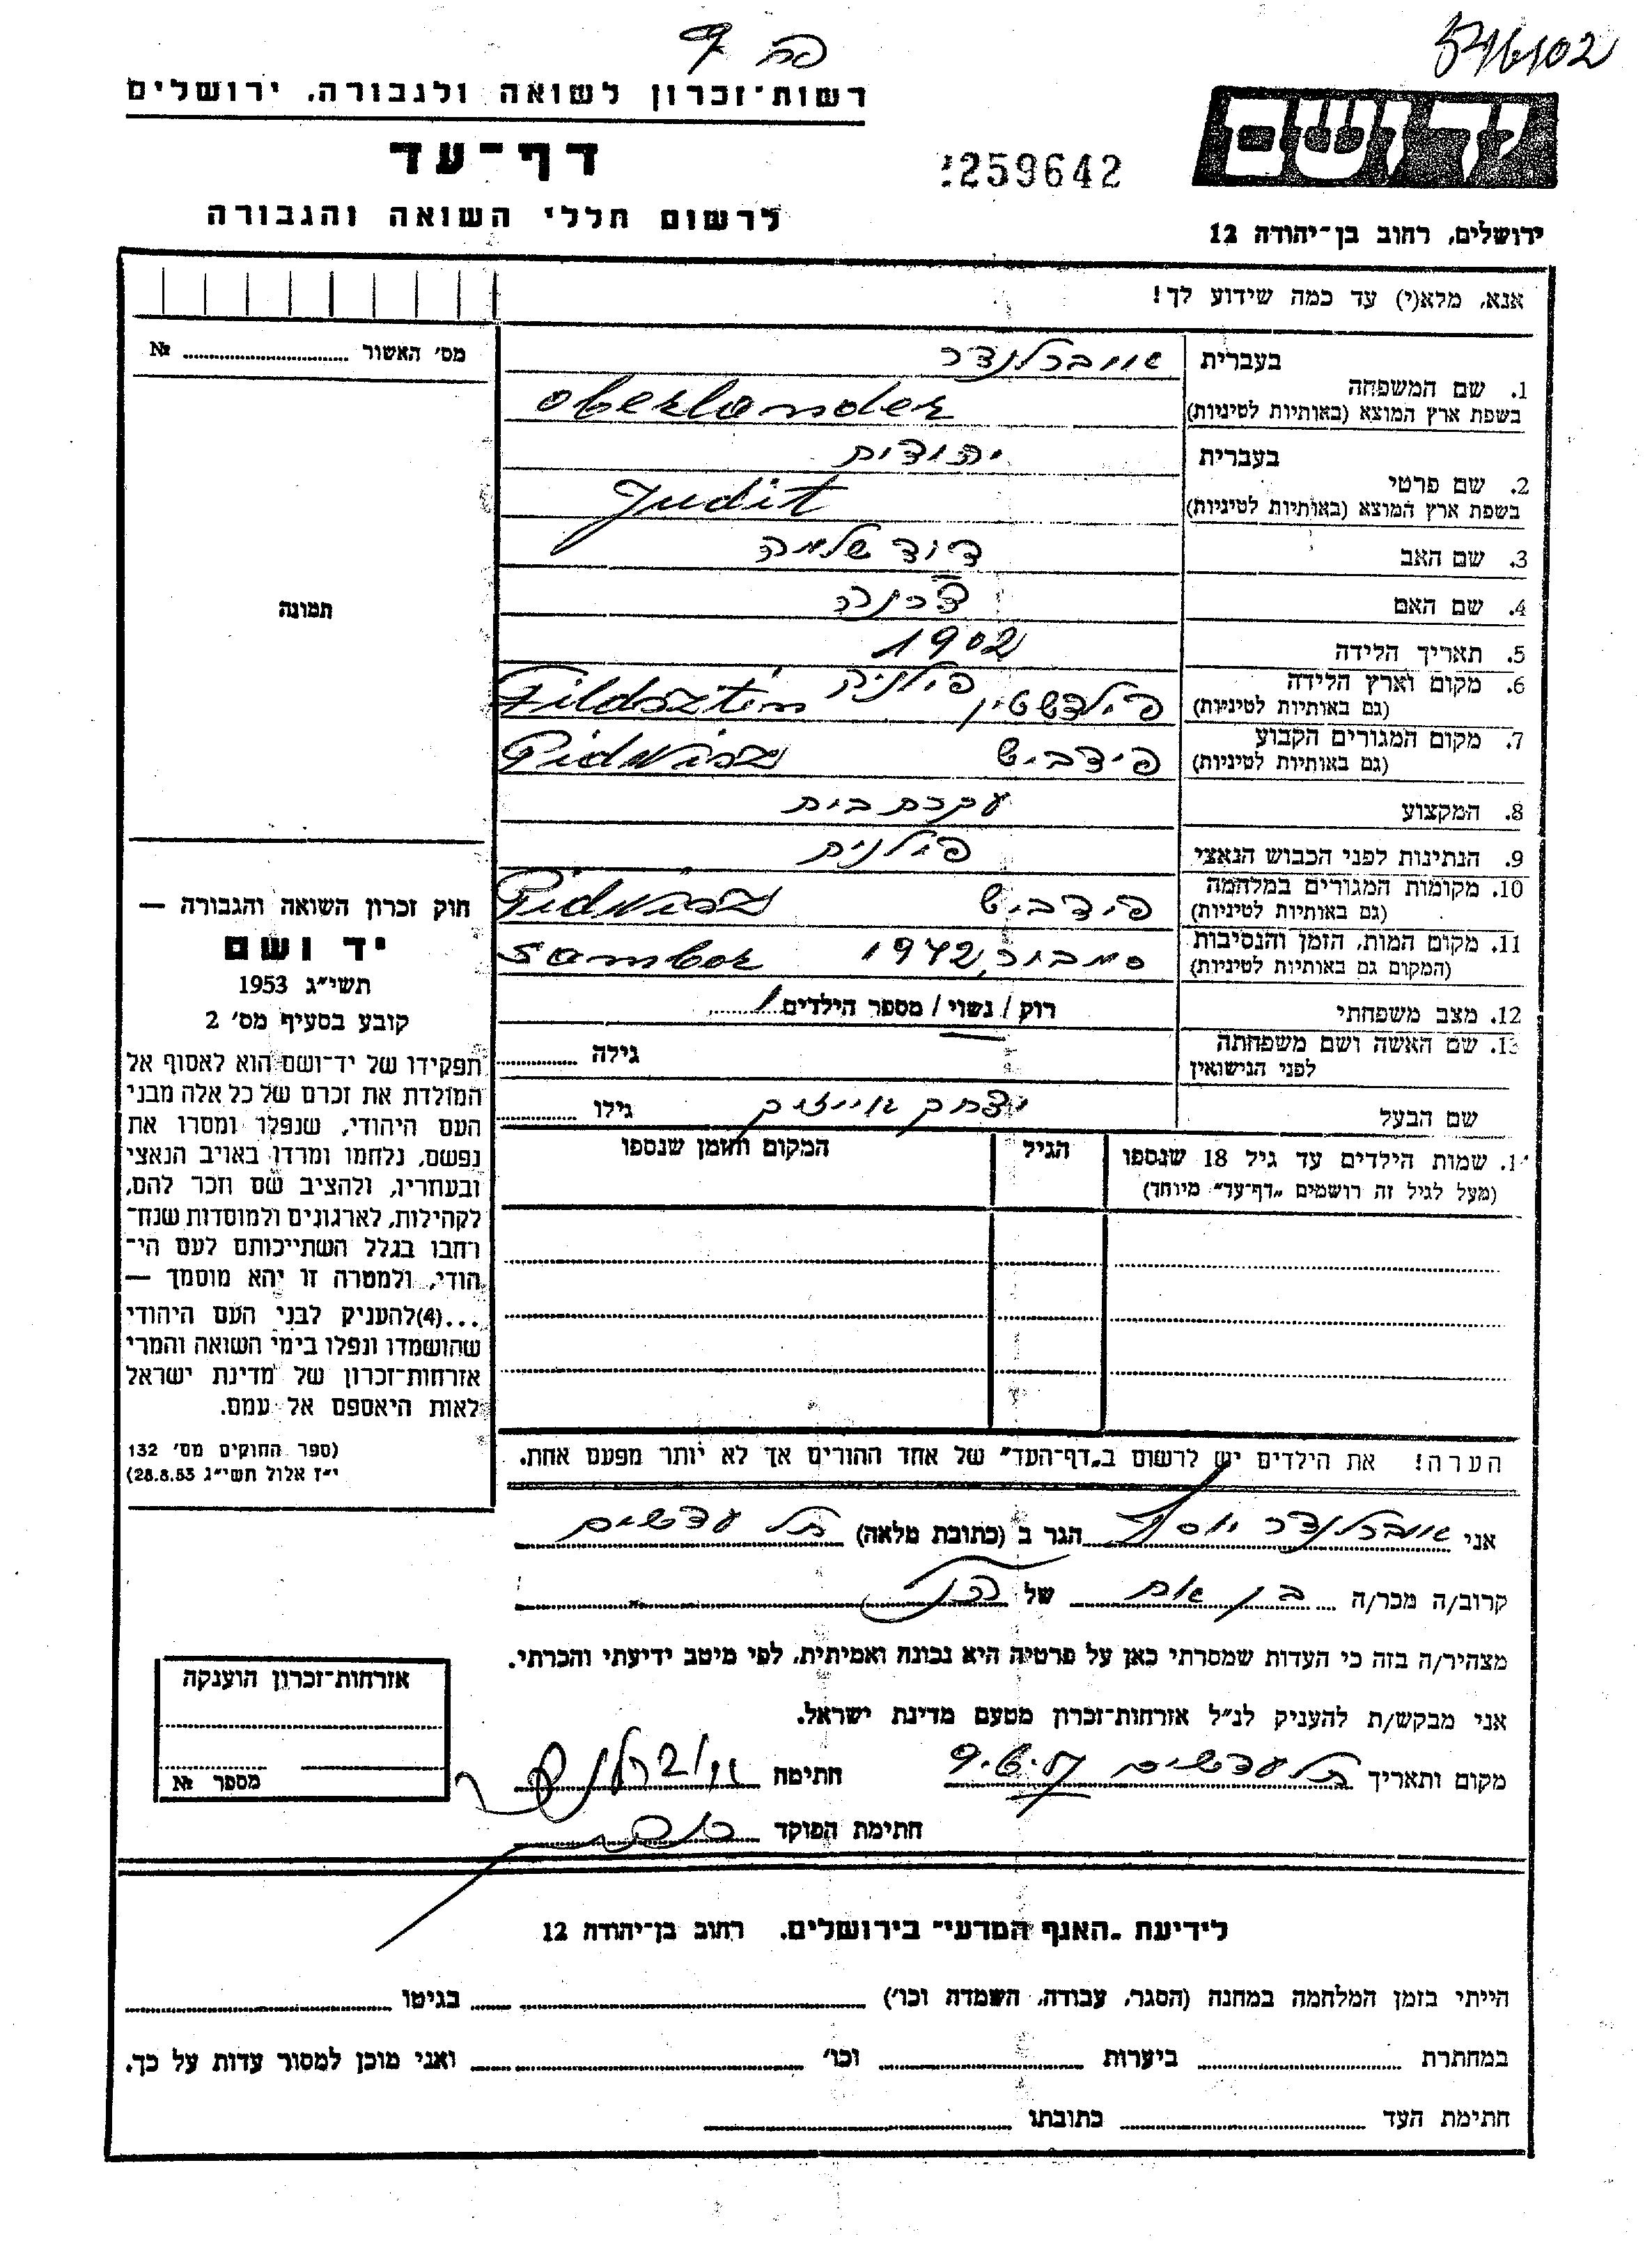 פח 9
546102
רשות־זכרון לשואה ולגבורה, ירושלים
דף־עד
לרשום חללי השואה והגבורה
259642
יד ושם
ירושלים, רחוב בן־יהודה 12
אנא, מלא(י) עד כמה שידוע לך!
מס׳ האשור ........ №
תמונה
בעברית אוברלנדר
1. שם המשפחה
בשפת ארץ המוצא (באותיות לטיניות) Oberlander
בעברית יהודית
2. שם פרטי
בשפת ארץ המוצא (באותיות לטיניות) Judit
3. שם האב דוד שלמה
4. שם האם
5. תאריך הלידה 1902
6. מקום וארץ הלידה
(גם באותיות לטיניות) פילדשטין פולניה Fildsztin
7. מקום המגורים הקבוע
(גם באותיות לטיניות) פידביש Pidwisz
8. המקצוע עקרת בית
9. הנתינות לפני הכבוש הנאצי פולנית
10. מקומות המגורים במלחמה
(גם באותיות לטיניות) פידביש Pidwisz
11. מקום המות, הזמן והנסיבות
(המקום גם באותיות לטיניות) סמבור, 1942 Sambor
12. מצב משפחתי רוק / נשוי / מספר הילדים 1
13. שם האשה ושם משפחתה
לפני הנישואין
גילה ........
שם הבעל יצחק אייזיק גילו ........
1. שמות הילדים עד גיל 18 שנספו
(מעל לגיל זה רושמים „דף־עד״ מיוחד)
הגיל
המקום והזמן שנספו
חוק זכרון השואה והגבורה —
יד ושם
תשי״ג 1953
קובע בסעיף מס׳ 2
תפקידו של יד־ושם הוא לאסוף אל
המולדת את זכרם של כל אלה מבני
העם היהודי, שנפלו ומסרו את
נפשם, נלחמו ומרדו באויב הנאצי
ובעוזריו, ולהציב שם וזכר להם,
לקהילות, לארגונים ולמוסדות שנח־
רחבו בגלל השתייכותם לעם הי־
הודי, ולמטרה זו יהא מוסמך —
...(4)להעניק לבני העם היהודי
שהושמדו ונפלו בימי השואה והמרי
אזרחות־זכרון של מדינת ישראל
לאות היאספם אל עמם.
(ספר החוקים מס׳ 132
י״ז אלול תשי״ג 28.8.53)
הערה! את הילדים יש לרשום ב„דף־העד״ של אחד ההורים אך לא יותר מפעם אחת.
אני אוברלנדר יוסף הגר ב (כתובת מלאה) תל עדשים
קרוב/ה מכר/ה בן אח של הנ״ל
מצהיר/ה בזה כי העדות שמסרתי כאן על פרטיה היא נכונה ואמיתית, לפי מיטב ידיעתי והכרתי.
אני מבקש/ת להעניק לנ״ל אזרחות־זכרון מטעם מדינת ישראל.
מקום ותאריך תל עדשים 9.6.57 חתימה
חתימת הפוקד
אזרחות־זכרון הוענקה
מספר №
לידיעת „האגף המדעי״ בירושלים, רחוב בן־יהודה 12
הייתי בזמן המלחמה במחנה (הסגר, עבודה, השמדה וכו׳) ........ בגיטו ........
במחתרת ........ ביערות ........ וכו׳ ........ ואני מוכן למסור עדות על כך.
חתימת העד ........ כתובתו ........